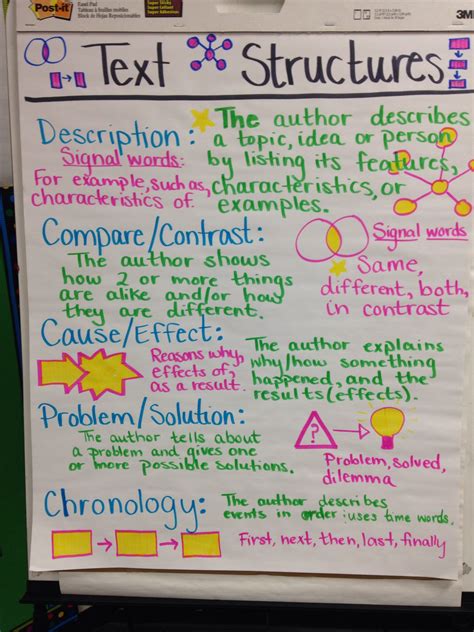 Post-it
Easel Pad
Super Sticky
3M
Text Structures
Description:
The author describes
a topic, idea or person
by listing its features,
characteristics, or
examples.
Signal words:
For example, such as,
characteristics of.
Compare/Contrast:
The author shows
how 2 or more things
are alike and/or how
they are different.
Signal words
Same,
different, both,
in contrast
Cause/Effect:
Reasons why,
effects of,
as a result.
The author explains
why/how something
happened, and the
results (effects).
Problem/Solution:
The author tells about
a problem and gives one
or more possible solutions.
?
Problem, solved,
dilemma
Chronology:
The author describes
events in order: uses time words.
First, next, then, last, finally